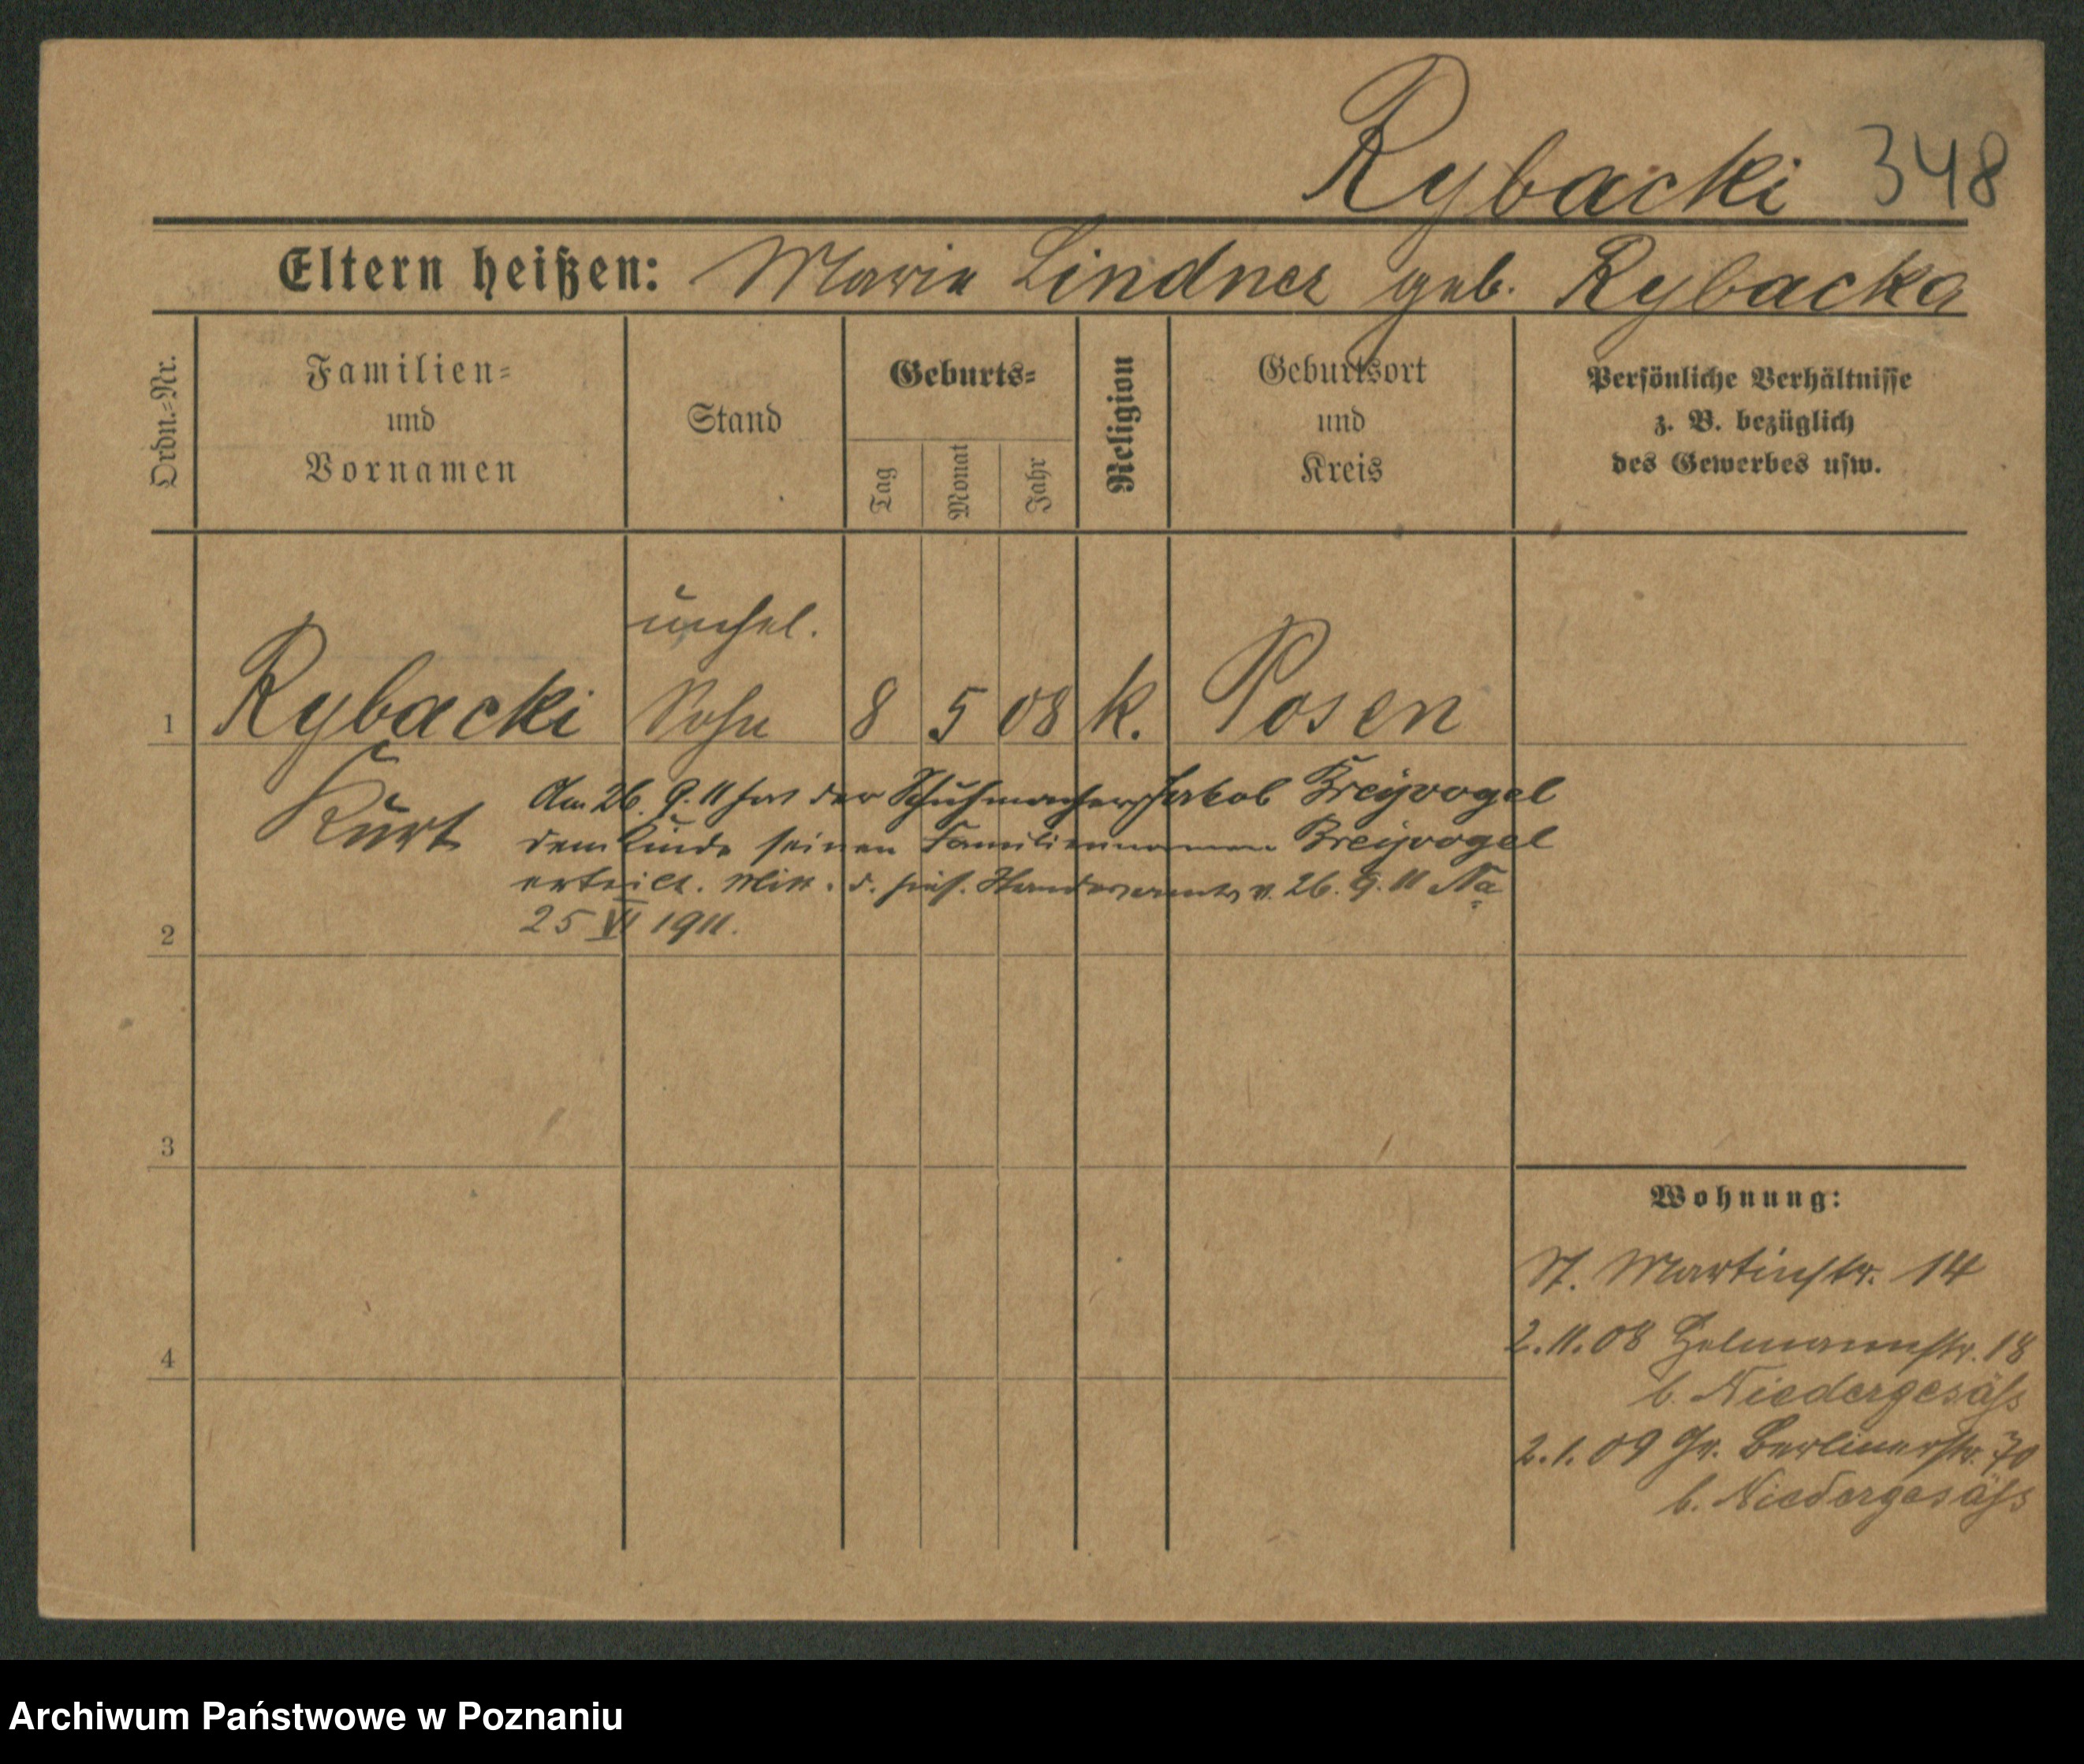 Rybacki 348
Eltern heißen: Marie Lindner geb. Rybacka
Ordn.=Nr.
Familien=
und
Vornamen
Stand
Geburts=
Tag
Monat
Jahr
Religion
Geburtsort
und
Kreis
Persönliche Verhältnisse
z. B. bezüglich
des Gewerbes usw.
unehel.
1 Rybacki Sohn 8 5 08 k. Posen
Kurt
Am 26. 9. 11 hat der Schuhmacher Jakob Breyvogel
dem Kinde seinen Familiennamen Breyvogel
erteilt. Mitt. d. hies. Standesamts v. 26. 9. 11 Na
25 VI 1911.
2
3
4
Wohnung:
St. Martinstr. 14
2.11.08 18
b. Niedergesäß
2.1.09 Gr. Berlinerstr. 70
b. Niedergesäß
Archiwum Państwowe w Poznaniu